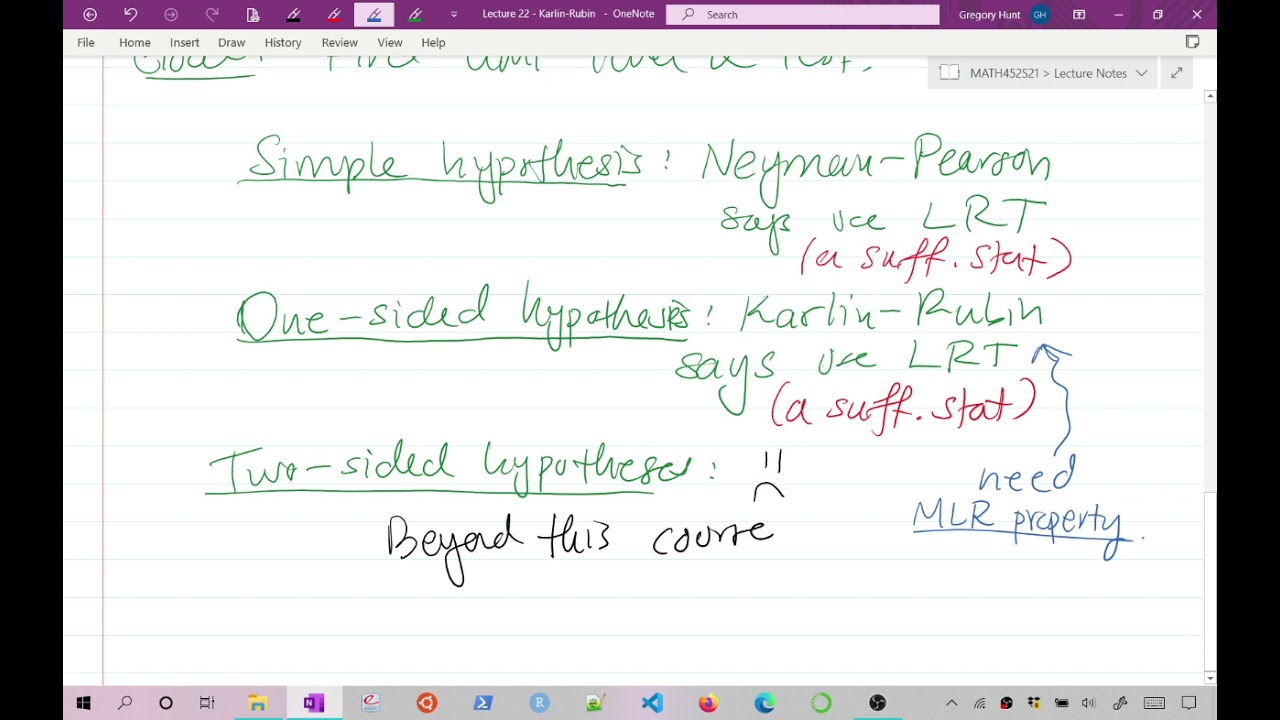 Lecture 22 - Karlin-Rubin - OneNote
Search
Gregory Hunt
GH
File Home Insert Draw History Review View Help
MATH452S21 > Lecture Notes
Simple hypothesis: Neyman-Pearson
says use LRT
(a suff. stat)
One-sided hypothesis: Karlin-Rubin
says use LRT
(a suff. stat)
Two-sided hypotheses:
need
MLR property.
Beyond this course